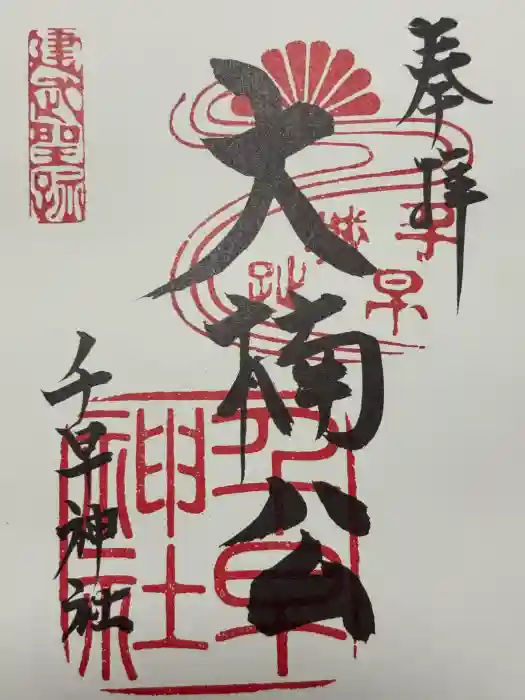 奉拝
千早
城址
大楠公
千早神社
千早
神社
建武聖跡